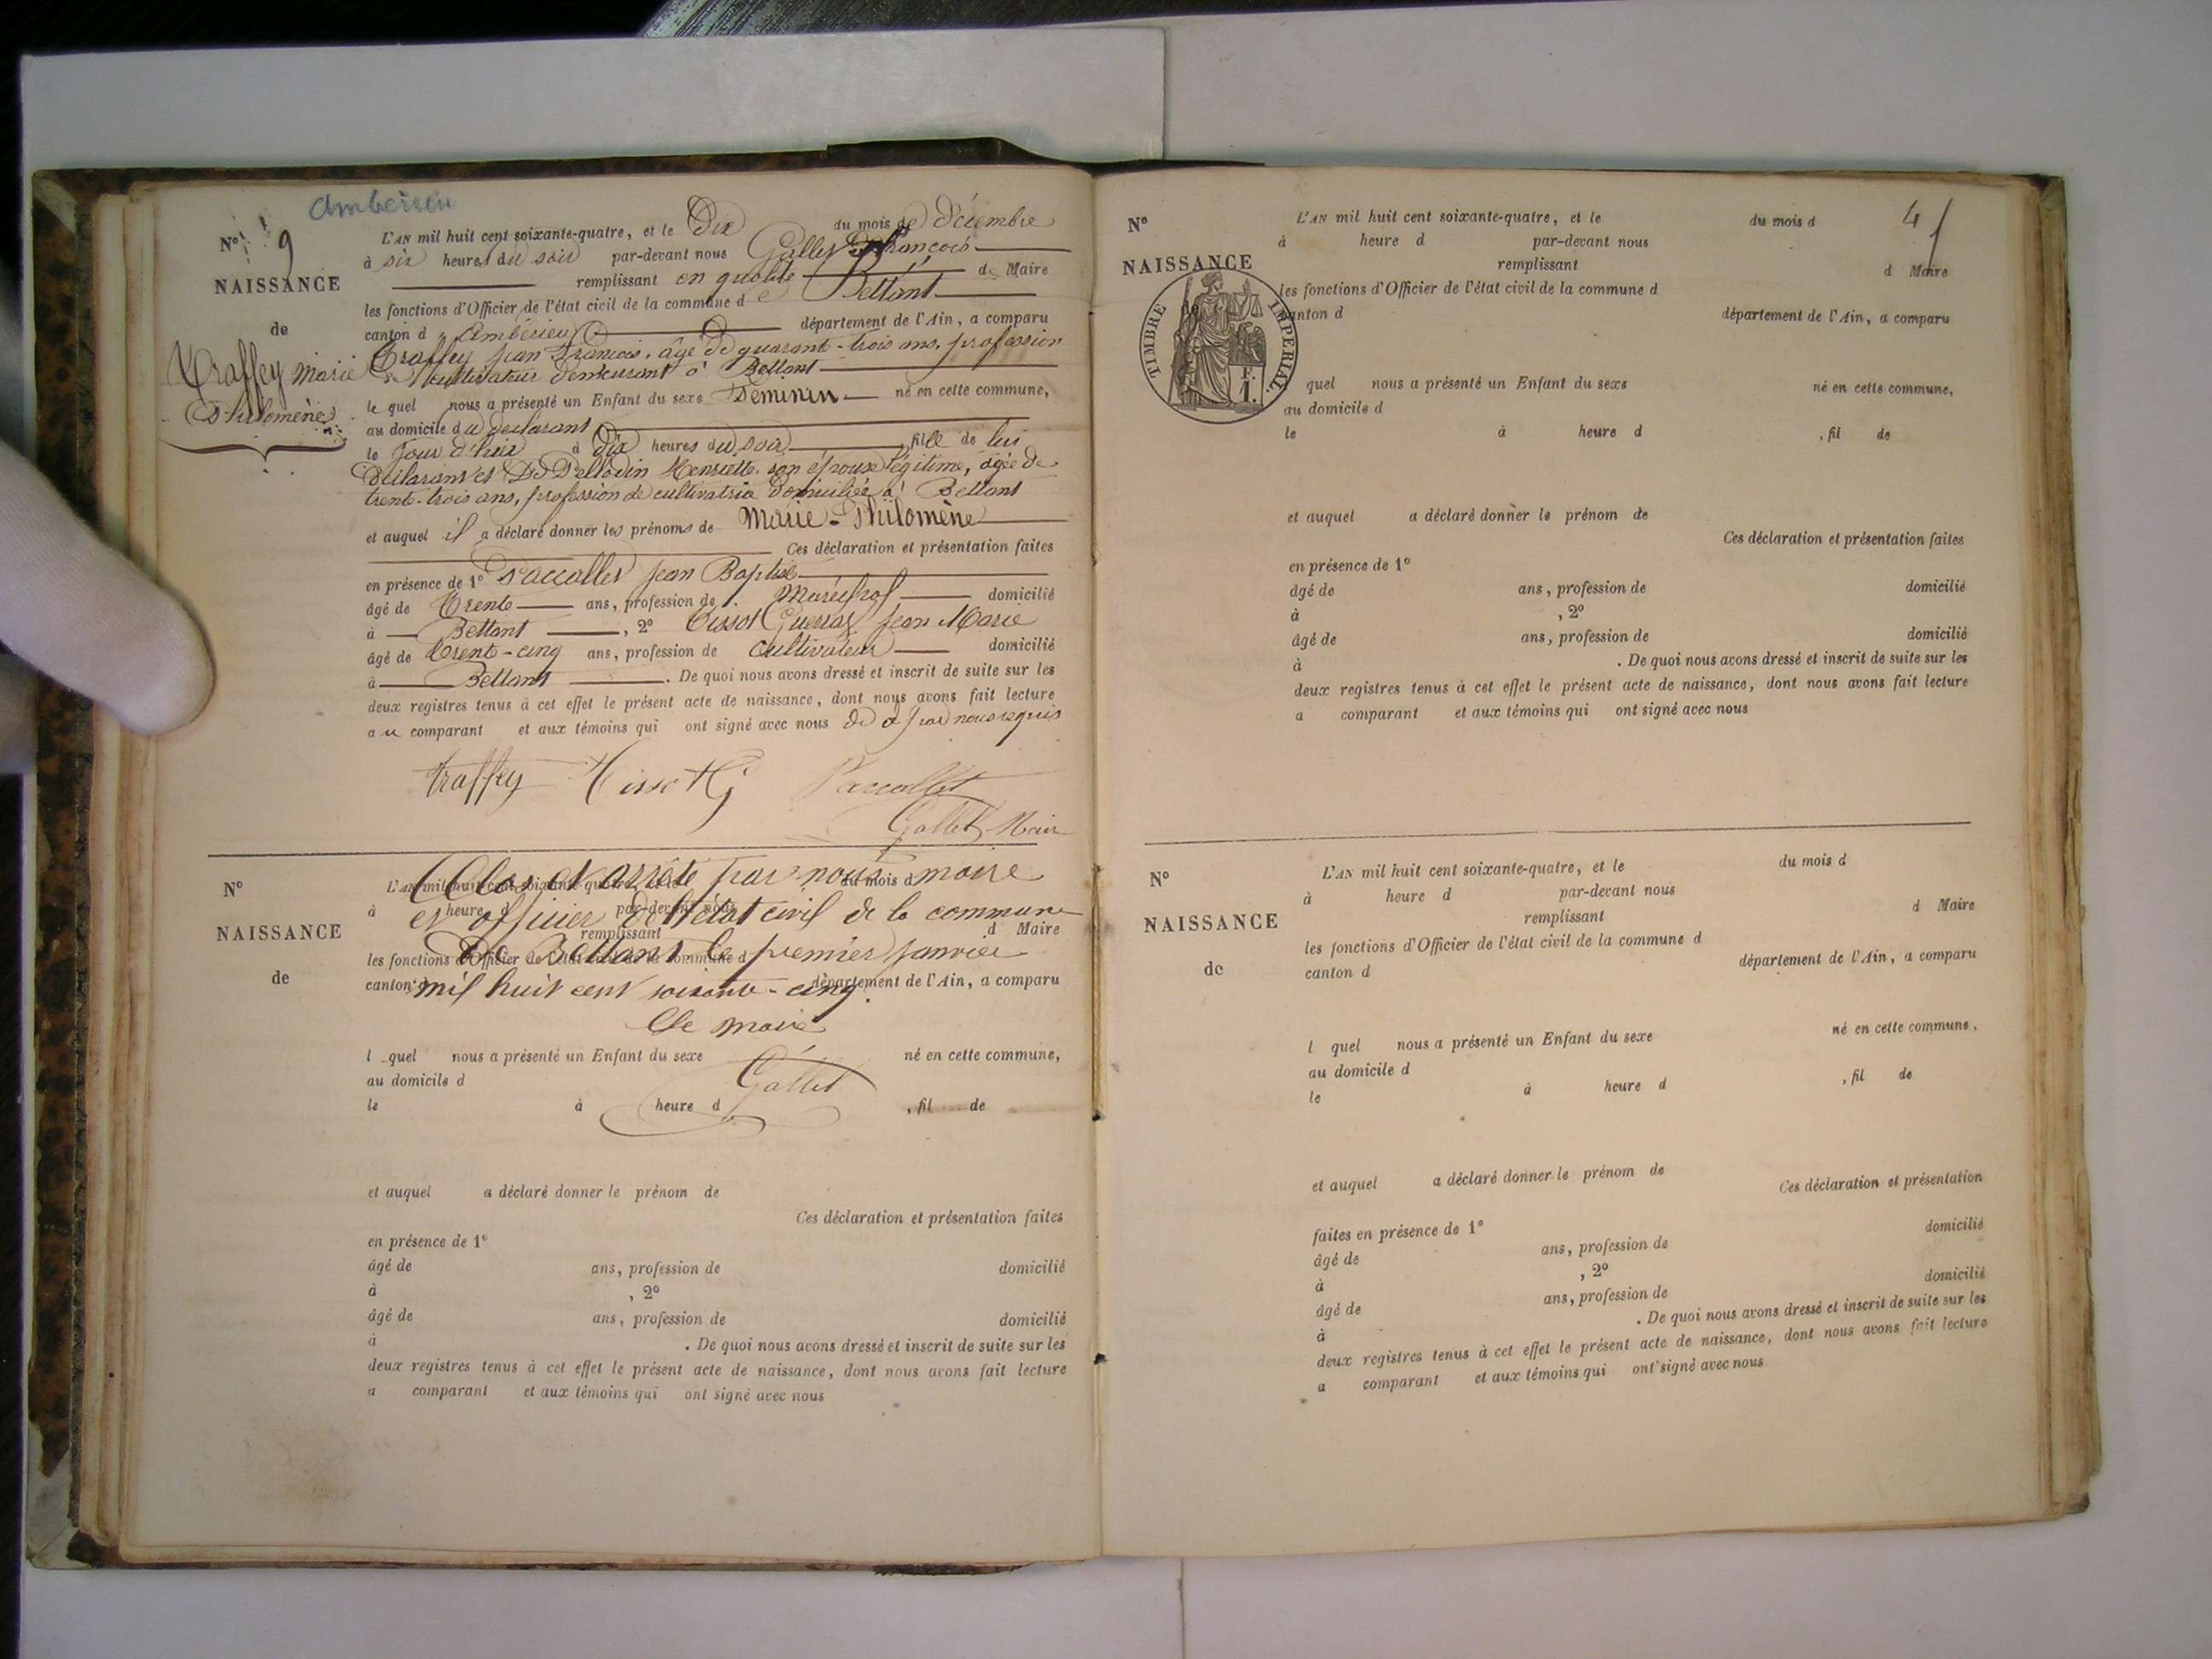 Ambérieu
N° 9
NAISSANCE
de
Traffey Marie
Philomène
L'AN mil huit cent soixante-quatre, et le Dix du mois de Décembre
à six heures du soir par-devant nous Gallet François
remplissant en qualité de Maire
les fonctions d'Officier de l'état civil de la commune de Bettant
canton d'Ambérieu département de l'Ain, a comparu
Traffey Jean François, âgé de quarante-trois ans, profession
de cultivateur demeurant à Bettant
lequel nous a présenté un Enfant du sexe Féminin né en cette commune,
au domicile du déclarant
le jour d'hier à Dix heures du soir, fille de lui
Déclarant et D Henriette son épouse légitime, âgée de
trente-trois ans, profession de cultivatrice domiciliée à Bettant
et auquel il a déclaré donner les prénoms de Marie-Philomène
Ces déclaration et présentation faites
en présence de 1° Paccallet Jean Baptiste
âgé de Trente ans, profession de Maréchal domicilié
à Bettant, 2° Tissot Guerraz Jean Marie
âgé de Trente-cinq ans, profession de Cultivateur domicilié
à Bettant. De quoi nous avons dressé et inscrit de suite sur les
deux registres tenus à cet effet le présent acte de naissance, dont nous avons fait lecture
au comparant et aux témoins qui ont signé avec nous de ce par nous requis
Traffey Tissot G Paccallet
Gallet Maire
N°
NAISSANCE
de
Clos et arrêté par nous maire
et officier de l'état civil de la commune
De Bettant le premier janvier
mil huit cent soixante-cinq.
Le maire
Gallet
L'AN mil huit cent soixante-quatre, et le du mois d
à heure d par-devant nous
remplissant d Maire
les fonctions d'Officier de l'état civil de la commune d
canton d département de l'Ain, a comparu
l quel nous a présenté un Enfant du sexe né en cette commune,
au domicile d
le à heure d , fil de
et auquel a déclaré donner le prénom de
Ces déclaration et présentation faites
en présence de 1°
âgé de ans, profession de domicilié
à , 2°
âgé de ans, profession de domicilié
à . De quoi nous avons dressé et inscrit de suite sur les
deux registres tenus à cet effet le présent acte de naissance, dont nous avons fait lecture
a comparant et aux témoins qui ont signé avec nous
4
N°
NAISSANCE
de
TIMBRE IMPERIAL.
F.
1.
L'AN mil huit cent soixante-quatre, et le du mois d
à heure d par-devant nous
remplissant d Maire
les fonctions d'Officier de l'état civil de la commune d
canton d département de l'Ain, a comparu
quel nous a présenté un Enfant du sexe né en cette commune,
au domicile d
le à heure d , fil de
et auquel a déclaré donner le prénom de
Ces déclaration et présentation faites
en présence de 1°
âgé de ans, profession de domicilié
à , 2°
âgé de ans, profession de domicilié
à . De quoi nous avons dressé et inscrit de suite sur les
deux registres tenus à cet effet le présent acte de naissance, dont nous avons fait lecture
a comparant et aux témoins qui ont signé avec nous
N°
NAISSANCE
de
L'AN mil huit cent soixante-quatre, et le du mois d
à heure d par-devant nous
remplissant d Maire
les fonctions d'Officier de l'état civil de la commune d
canton d département de l'Ain, a comparu
l quel nous a présenté un Enfant du sexe né en cette commune,
au domicile d
le à heure d , fil de
et auquel a déclaré donner le prénom de
Ces déclaration et présentation
faites en présence de 1°
âgé de ans, profession de domicilié
à , 2°
âgé de ans, profession de domicilié
à . De quoi nous avons dressé et inscrit de suite sur les
deux registres tenus à cet effet le présent acte de naissance, dont nous avons fait lecture
a comparant et aux témoins qui ont signé avec nous